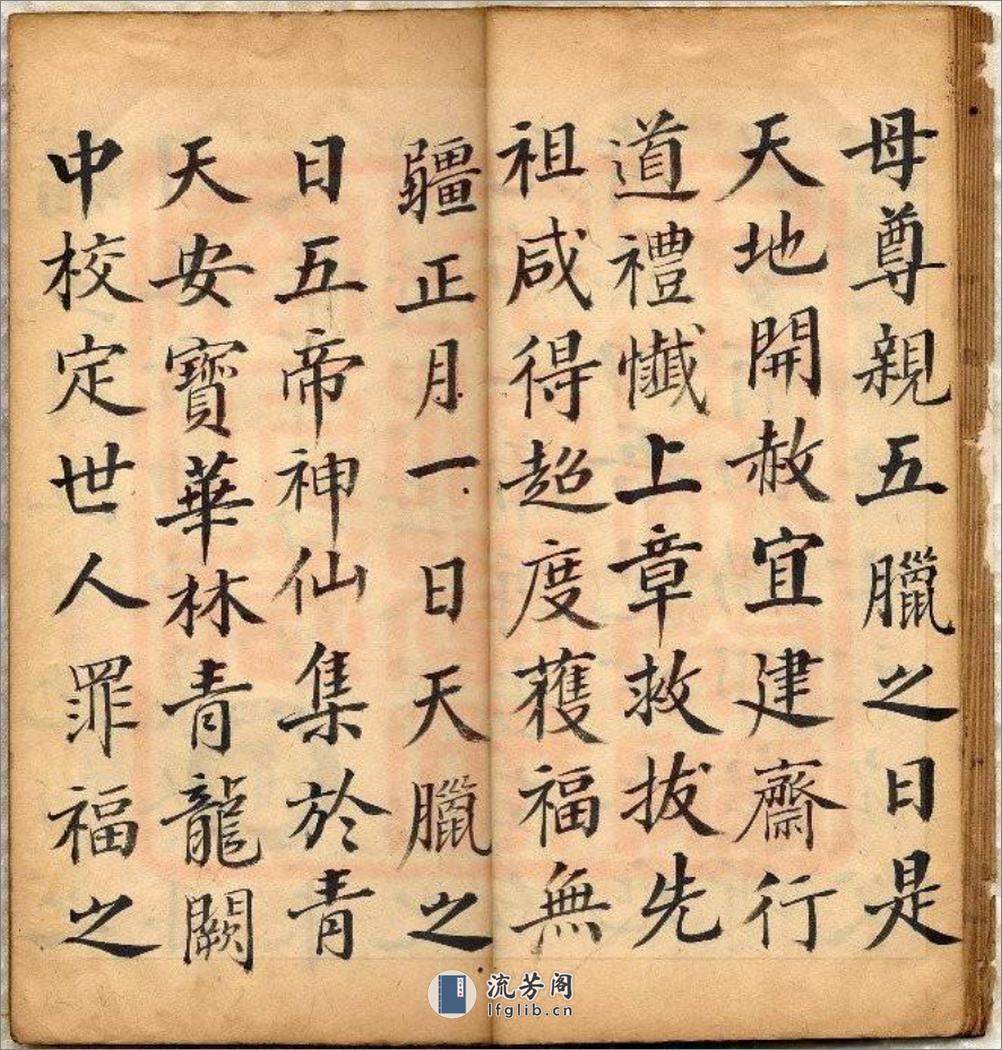 母尊親五臘之日是
天地開赦宜建齋行
道禮懺上章救拔先
祖咸得超度獲福無
疆正月一日天臘之
日五帝神仙集於青
天安寶華林青龍闕
中校定世人罪福之
流芳阁
lfglib.cn